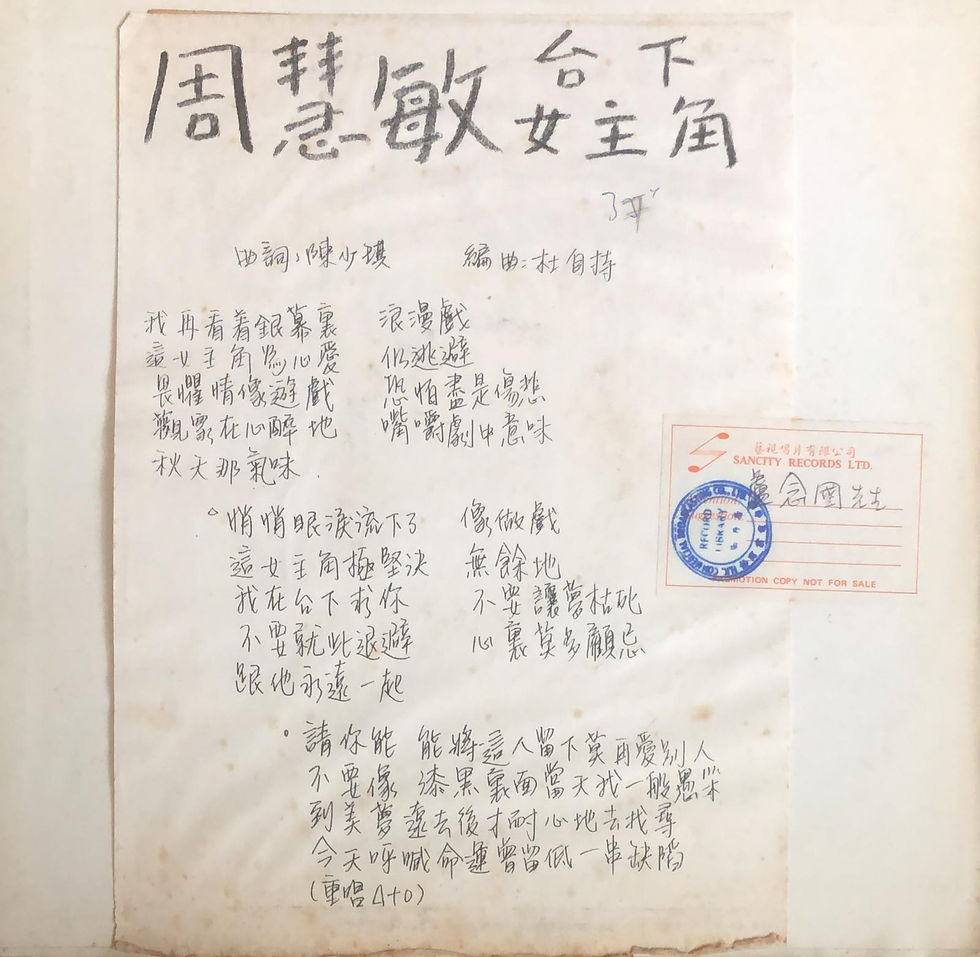 周慧敏 台下女主角
曲詞:陳少琪 編曲:杜自持
我再看着銀幕裏 浪漫戲
這女主角為心愛 似逃避
畏懼情像遊戲 恐怕盡是傷悲
觀眾在心醉地 嘴嚼劇中意味
秋天那氣味.
△悄悄眼淚流下了 像做戲
這女主角極堅決 無餘地
我在台下求你 不要讓夢枯死
不要就此退避 心裏莫多顧忌
跟他永遠一起
°請你能 能將這人留下莫再愛別人
不要像 漆黑裏面當天我一般愚笨
到美夢遠去後才耐心地去找尋
今天呼喊命運曾留低一串缺陷
(重唱△+0)
藝視唱片有限公司
SANCITY RECORDS LTD.
盧念國先生
RECORD
LIBRARY
PROMOTION COPY NOT FOR SALE